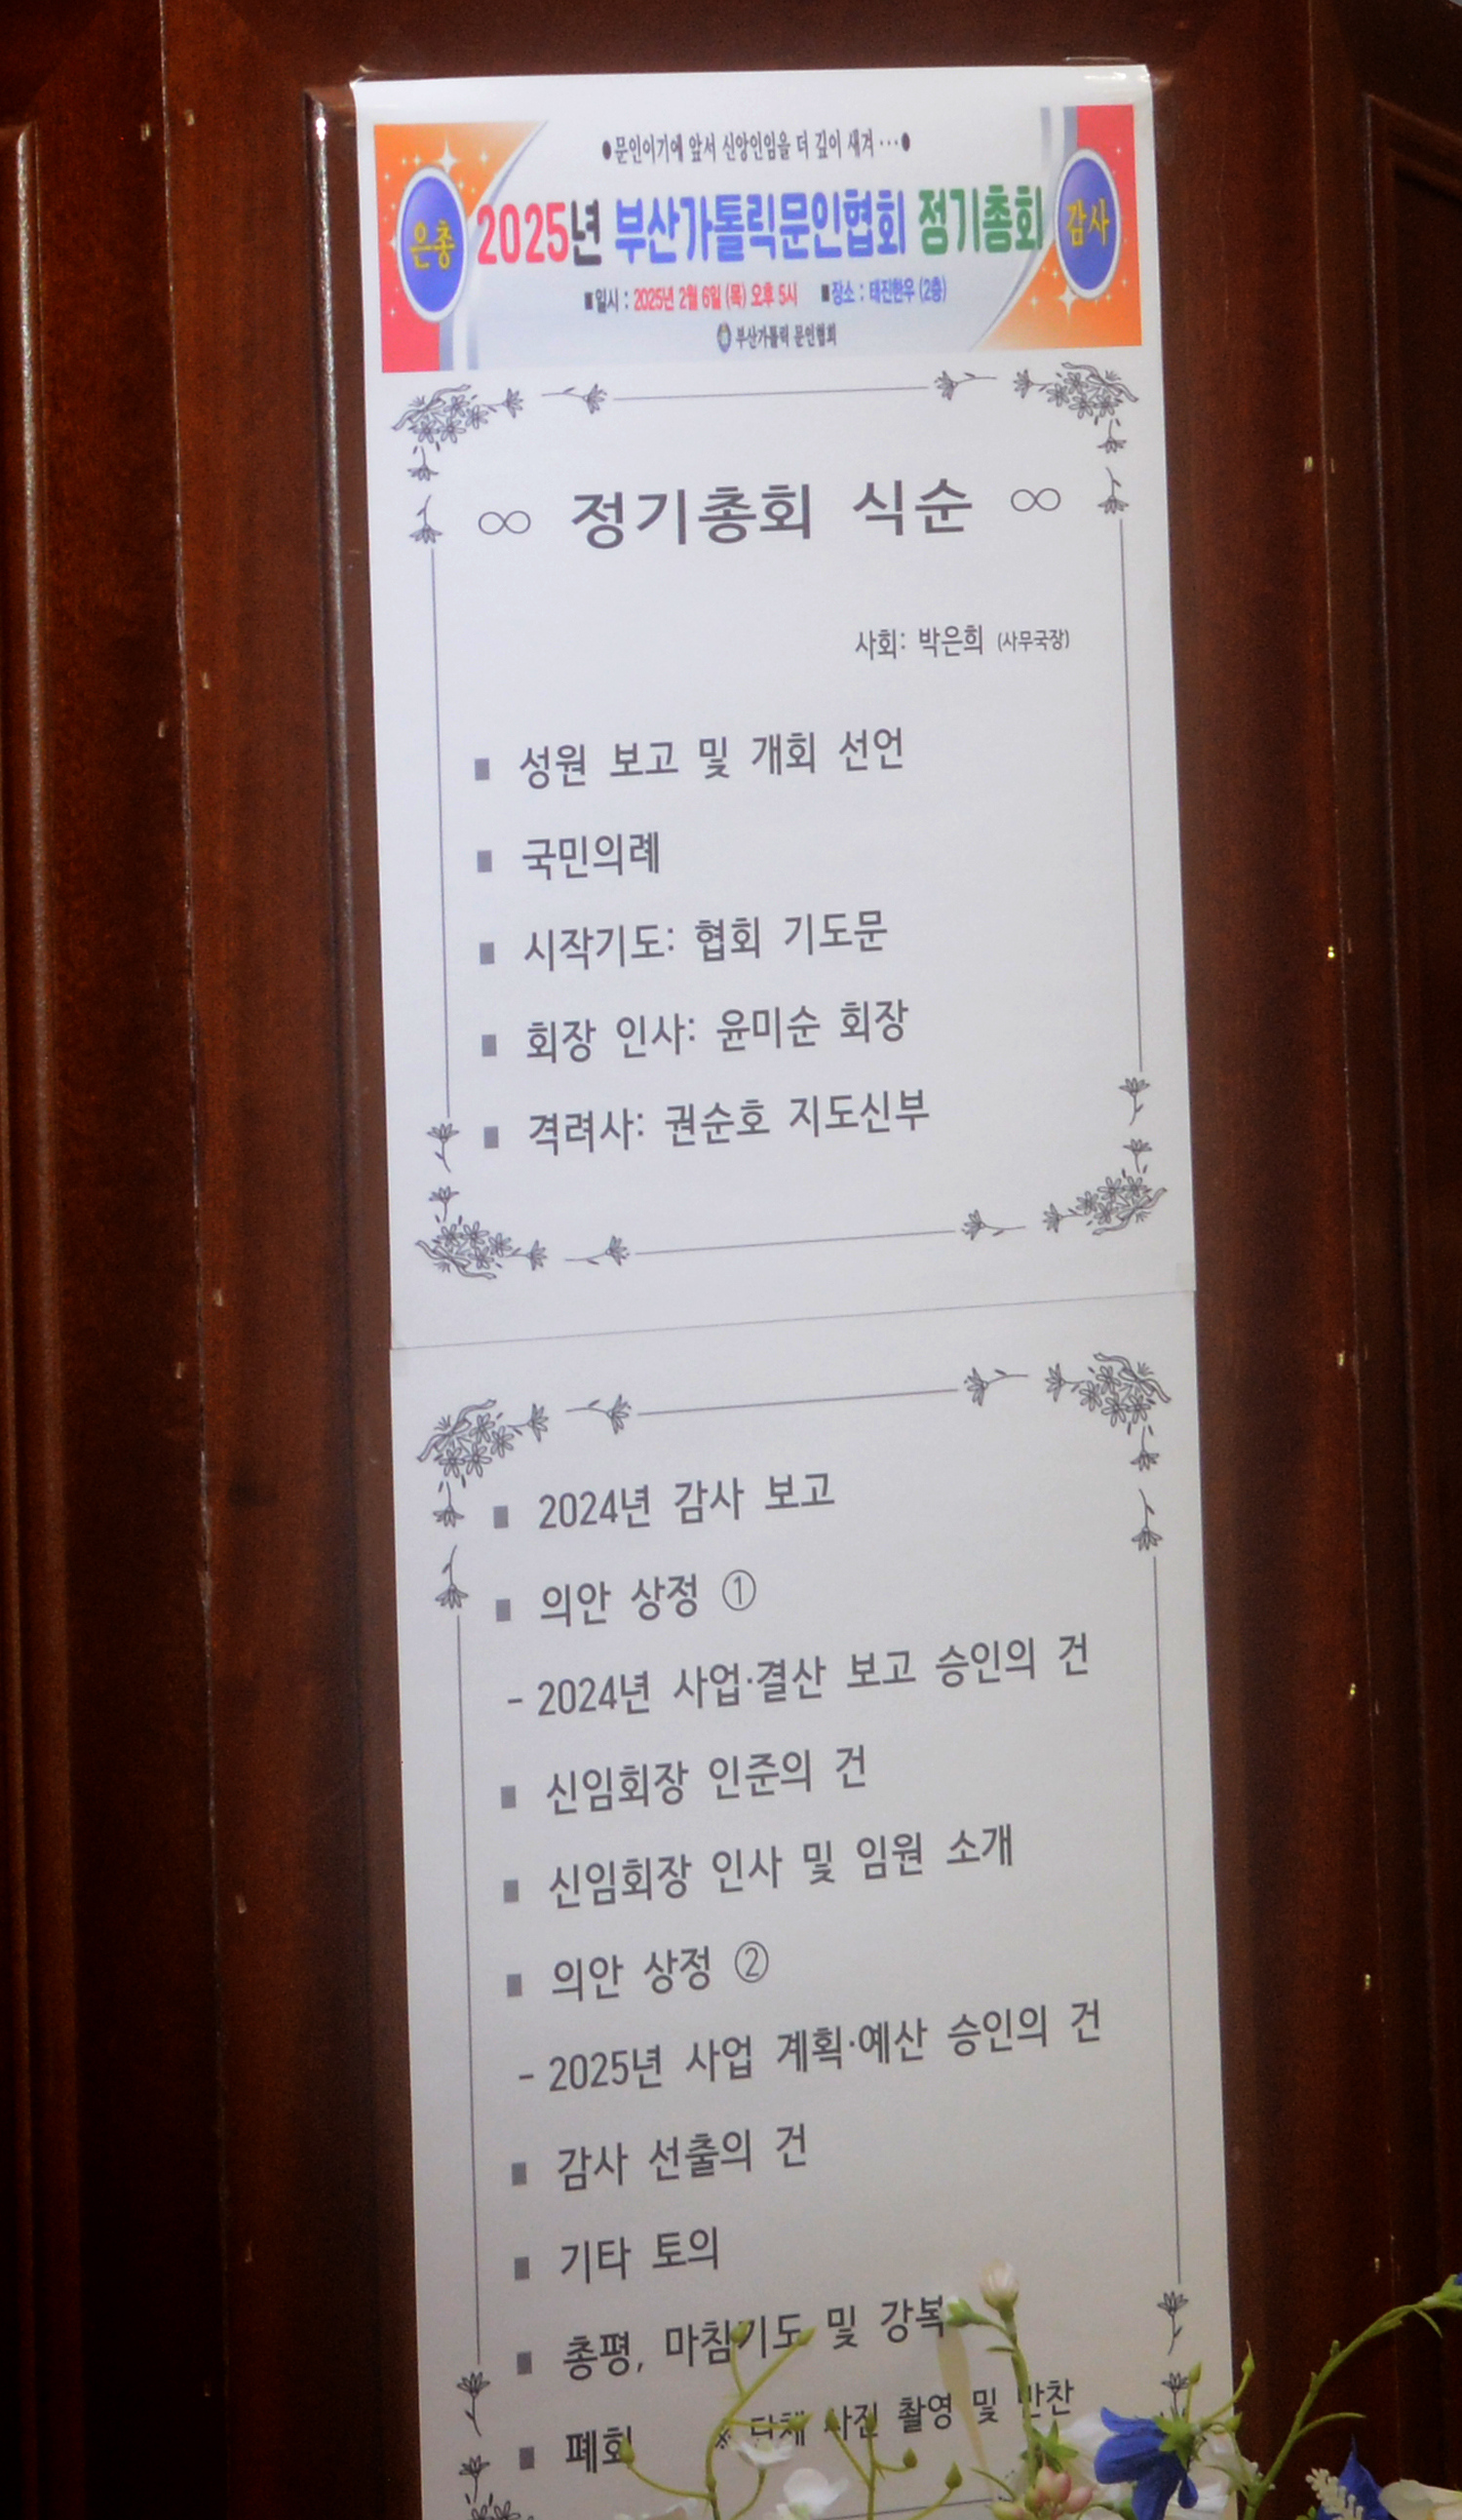 ●문인이기에 앞서 신앙인임을 더 깊이 새겨 ···●
은총
2025년 부산가톨릭문인협회 정기총회
감사
■일시 : 2025년 2월 6일 (목) 오후 5시 ■장소 : 태진한우 (2층)
부산가톨릭 문인협회
∞ 정기총회 식순 ∞
사회: 박은희 (사무국장)
■ 성원 보고 및 개회 선언
■ 국민의례
■ 시작기도: 협회 기도문
■ 회장 인사: 윤미순 회장
■ 격려사: 권순호 지도신부
■ 2024년 감사 보고
■ 의안 상정 ①
- 2024년 사업·결산 보고 승인의 건
■ 신임회장 인준의 건
■ 신임회장 인사 및 임원 소개
■ 의안 상정 ②
- 2025년 사업 계획·예산 승인의 건
■ 감사 선출의 건
■ 기타 토의
■ 총평, 마침기도 및 강복
■ 폐회 ※ 단체 사진 촬영 및 만찬